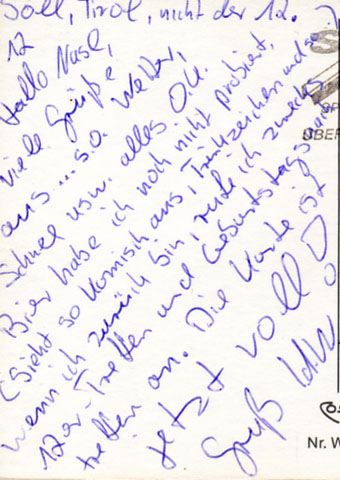 Söll, Tirol, nicht der 12.
12
Hallo Nasl,
viele Grüße
aus ... s.o. Wetter,
Schnee usw. alles O.K.
Bier habe ich noch nicht probiert,
(sieht so komisch aus, Trinkzeichen und so.)
wenn ich zurück bin, rufe ich zwecks
12er-Treffen und Geburtstags
treffen an. Die Karte ist
jetzt voll!
Gruß
ÜBER
Nr. W